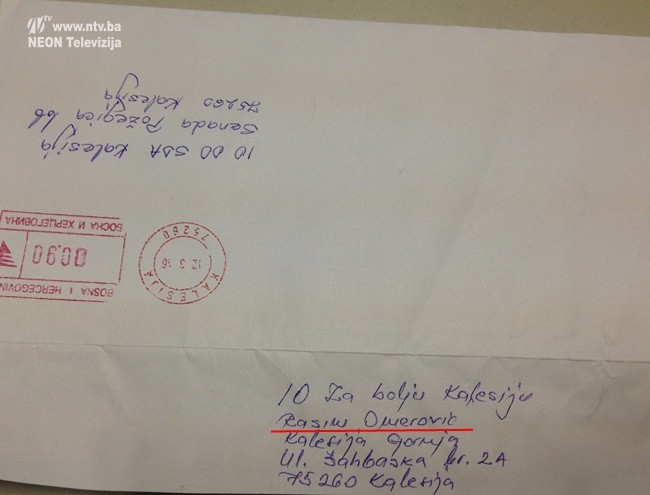 www.ntv.ba
NEON Televizija
IO Za bolju Kalesiju
Rasim Omerović
Kalesija Gornja
Ul. Šahbaška br. 2A
75260 Kalesija
IO OO SDA Kalesija
Senada Požegića bb
75260 Kalesija
BOSNA I HERCEGOVIN
00.90
БОСНА И ХЕРЦЕГОВИНА
75260
12 3 16
KALESIJA